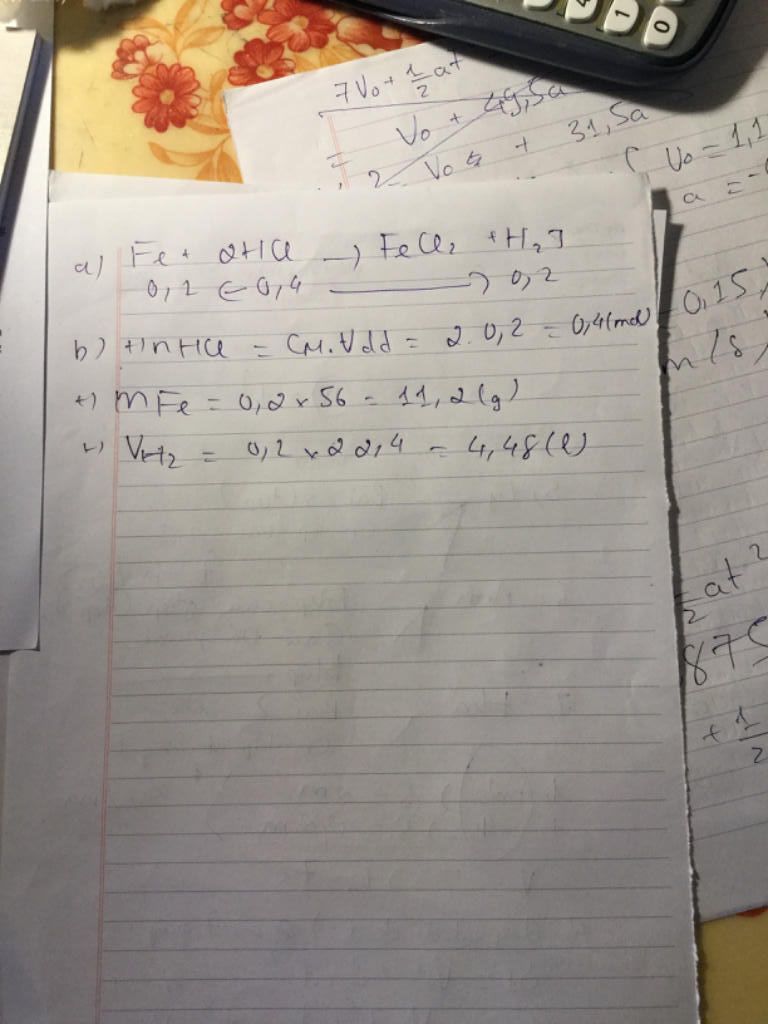 0
1
4
7V₀ + 1/2 at
= V₀ + 49,5a
V₀ + 31,5a
V₀ = 1,1
a = -0
a) Fe + 2HCl → FeCl₂ + H₂↑
0,2 ← 0,4 → 0,2
b) +) nHCl = CM.Vdd = 2.0,2 = 0,4(mol)
+) mFe = 0,2 x 56 = 11,2(g)
+) VH2 = 0,2 x 22,4 = 4,48(l)
0,15
m/s
1/2 at²
875
+ 1/2